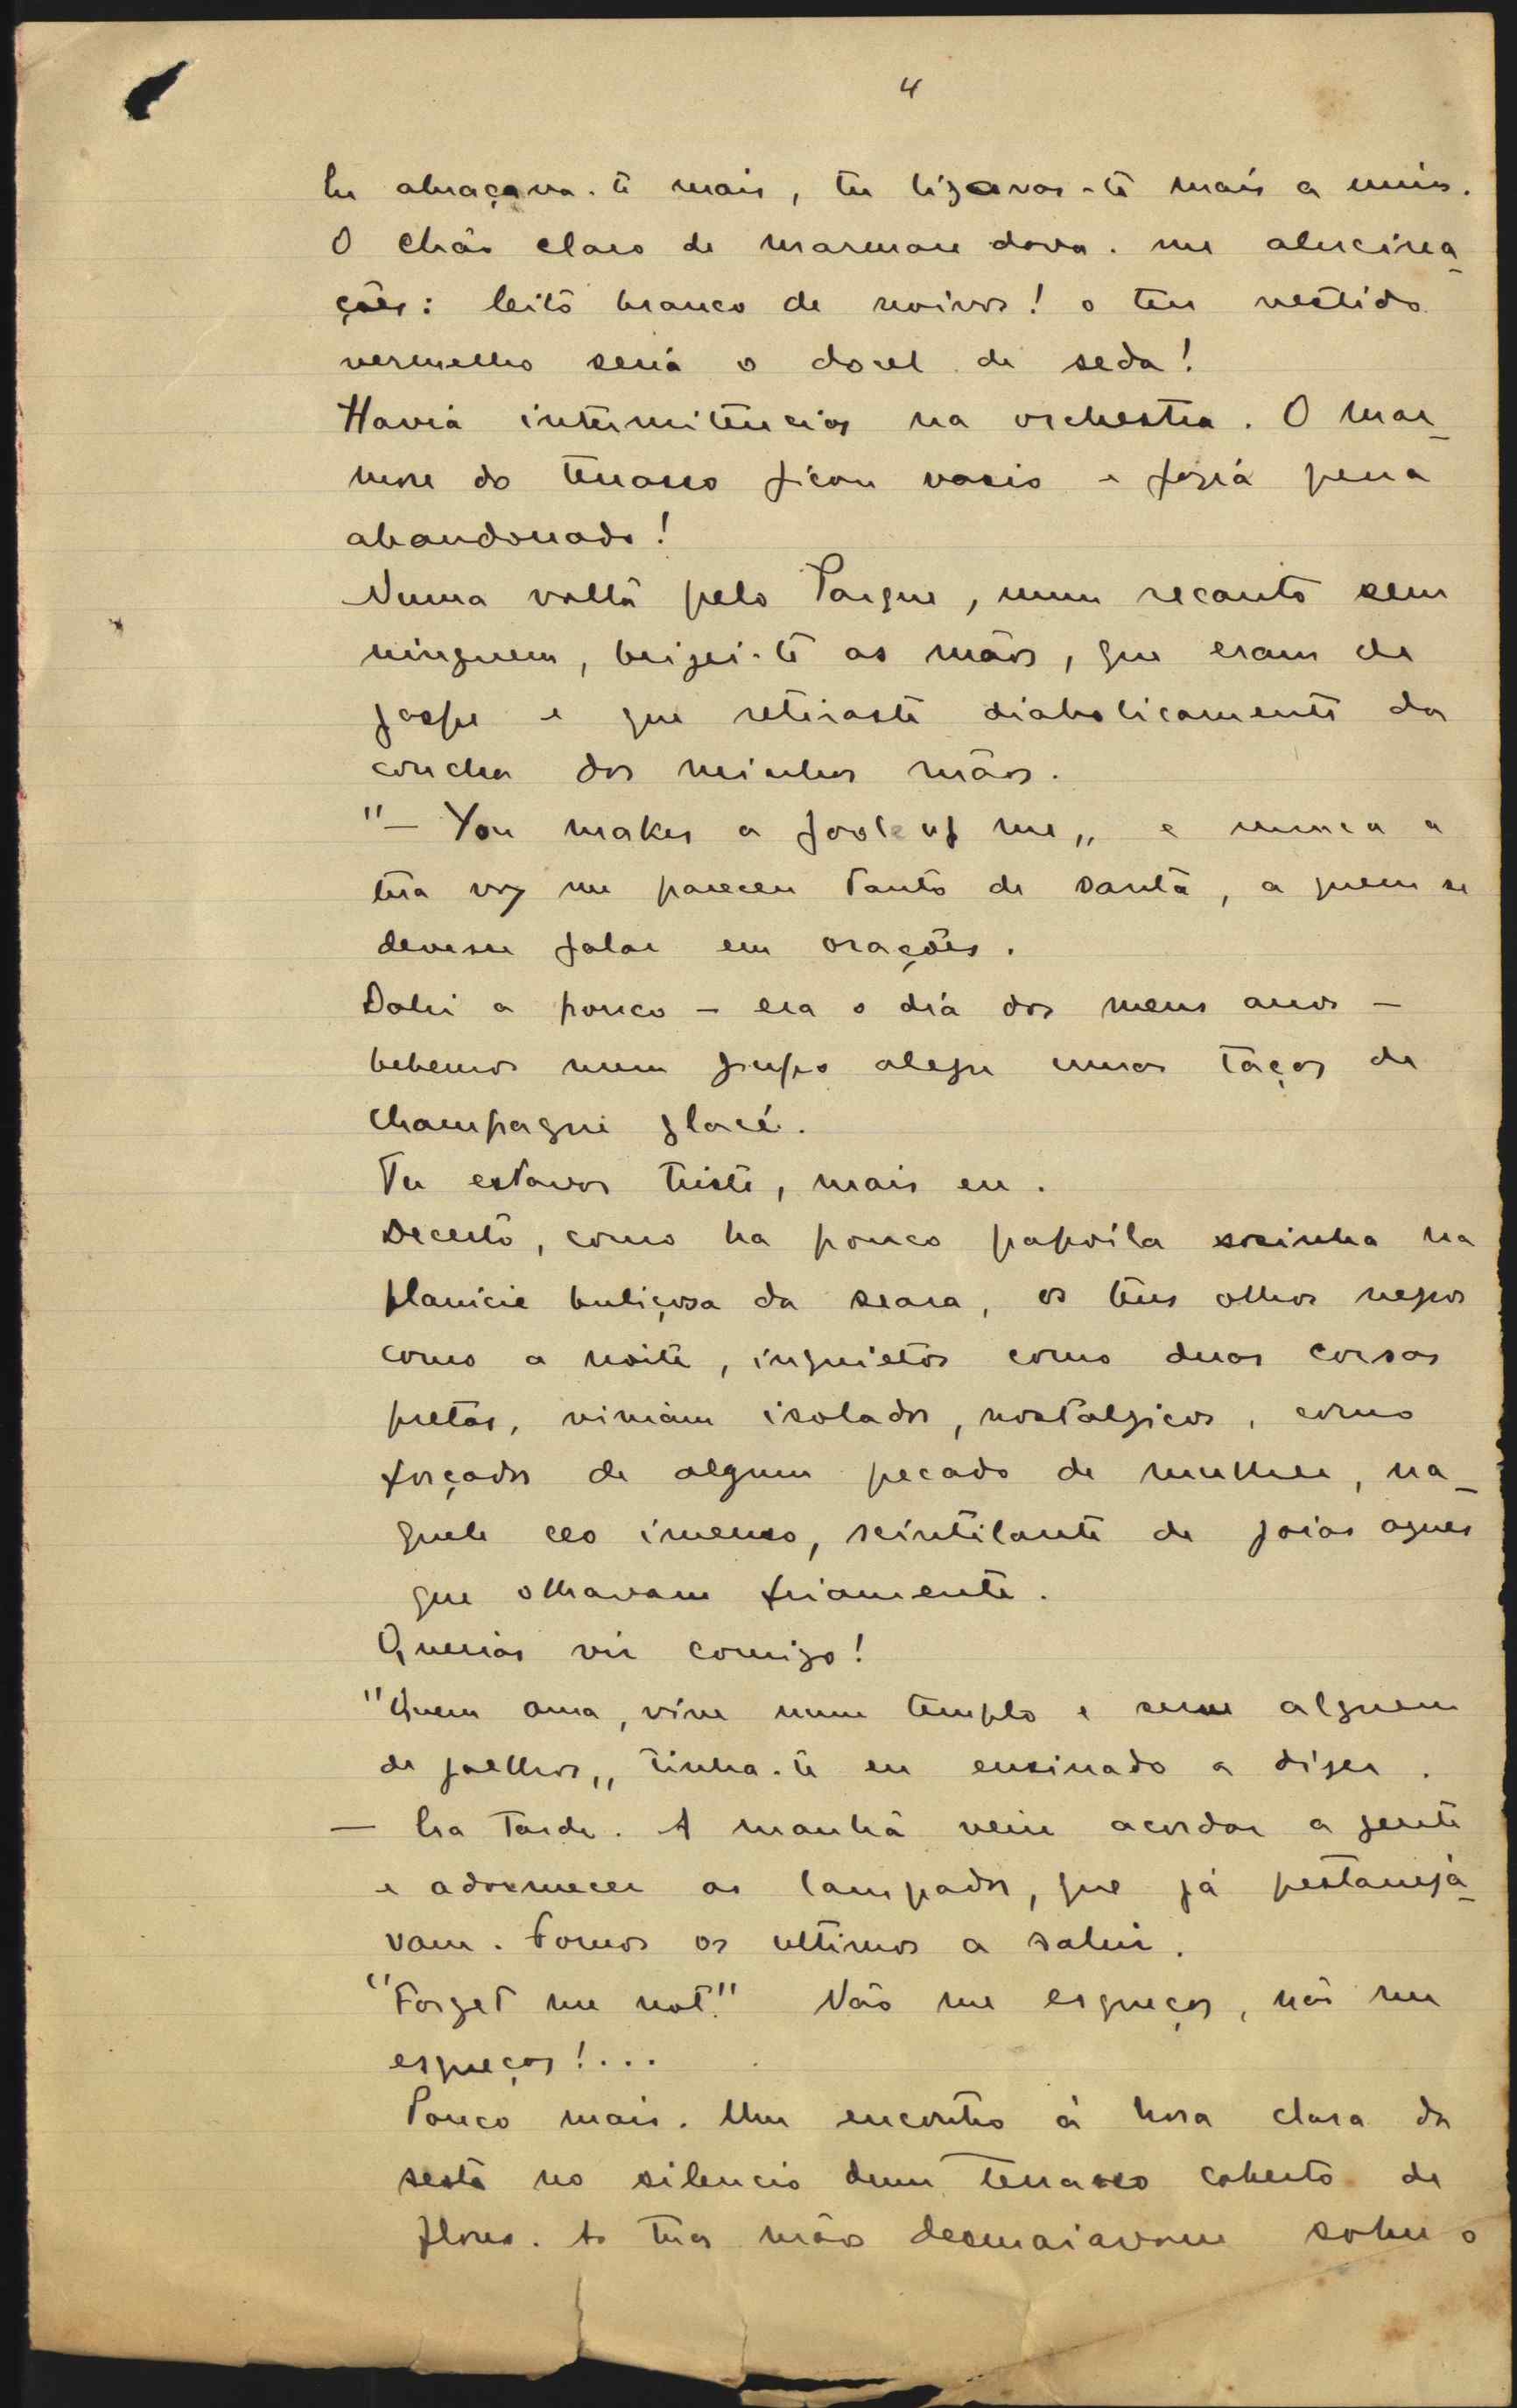 4
Eu abraçava-te mais, tu ligavas-te mais a mim.
O chão claro de marmore dava-me alucina-
ções: leito branco de noivos! o teu vestido
vermelho seria o docel de seda!
Havia intermitencias na orchestra. O mar-
more do terrasso ficou vasio e fazia pena
abandonado!
Numa volta pelo Parque, num recanto sem
ninguem, beijei-te as mãos, que eram de
jaspe e que retiraste diabolicamente da
concha das minhas mãos.
"— You makes a fool of me„ e nunca a
tua voz me pareceu tanto de santa, a quem se
devesse falar em orações.
Dahi a pouco — era o dia dos meus anos —
bebemos num grupo alegre umas taças de
champagne glacé.
Tu estavas triste, mais eu.
Decerto, como ha pouco papoila sosinha na
planicie buliçosa da seara, os teus olhos negros
como a noite, inquietos como duas corsas
pretas, viviam isolados, nostalgicos, como
forçados de algum pecado de mulher, na-
quele ceo imenso, scintilante de joias azues
que olhavam friamente.
Querias vir comigo!
"Quem ama, vive num templo e serve alguem
de joelhos„ tinha-te eu ensinado a dizer.
— Era tarde. A manhã veiu acordar a gente
e adormecer as lampadas, que já pestaneja-
vam. Fomos os ultimos a sahir.
"Forget me not." Não me esqueças, não me
esqueças!...
Pouco mais. Um encontro á hora clara da
sesta no silencio dum terrasso coberto de
flores. As tuas mãos desmaiavam sobre o